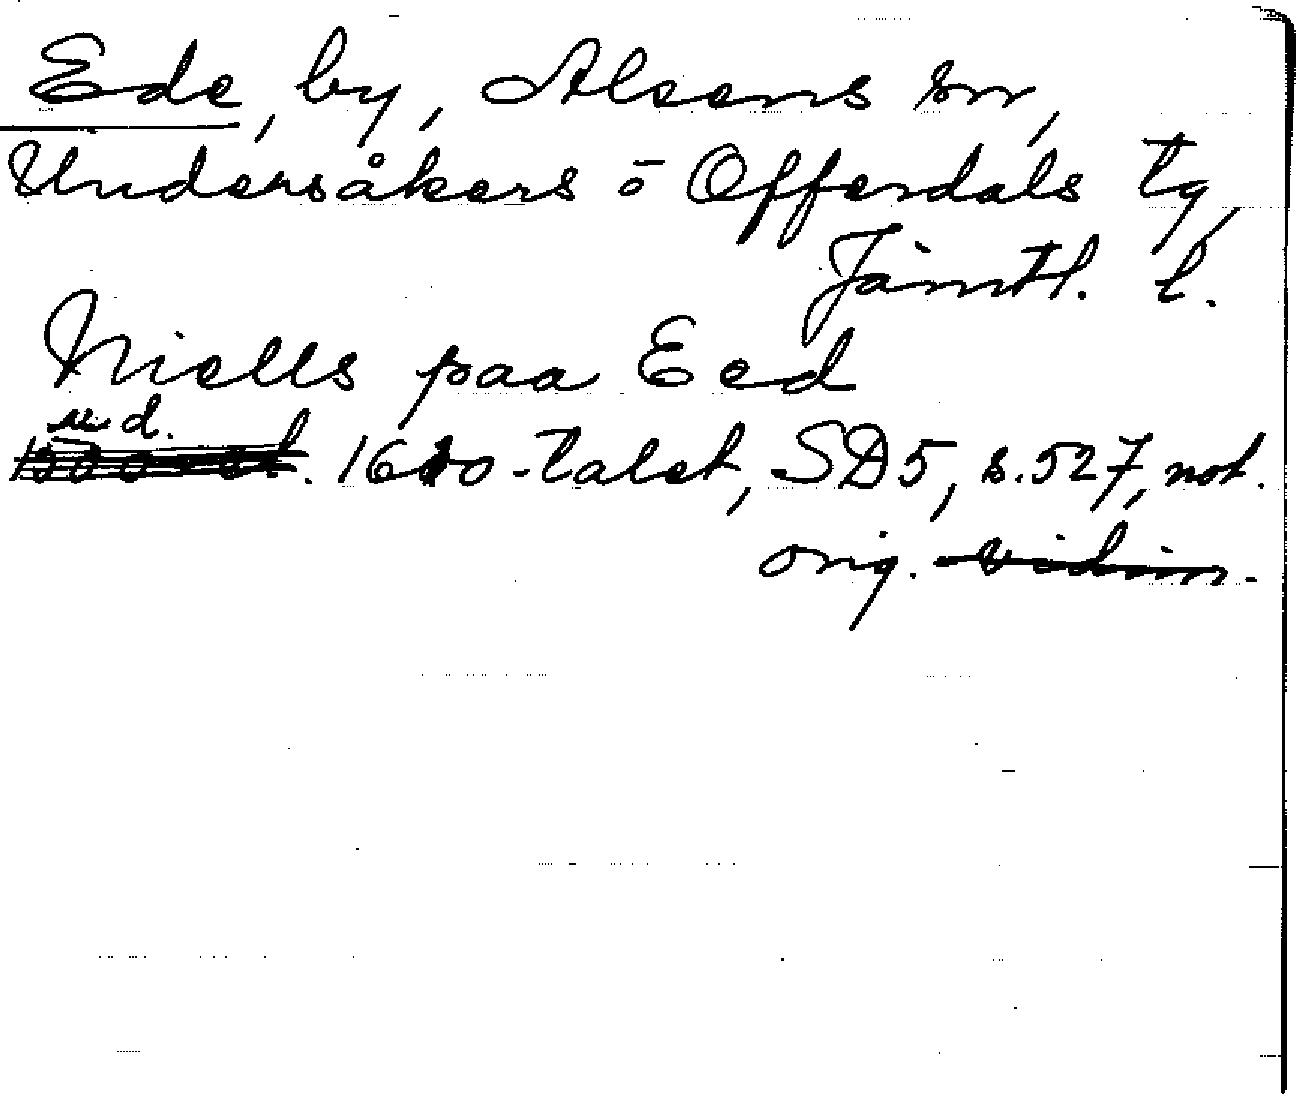 Ede, by, Alsens sn,
Undersåkers o Offerdals tg,
Jämtl. l.
Niells paa Eed
u. d.
1610-talet, SD5, s. 527, not.
orig.